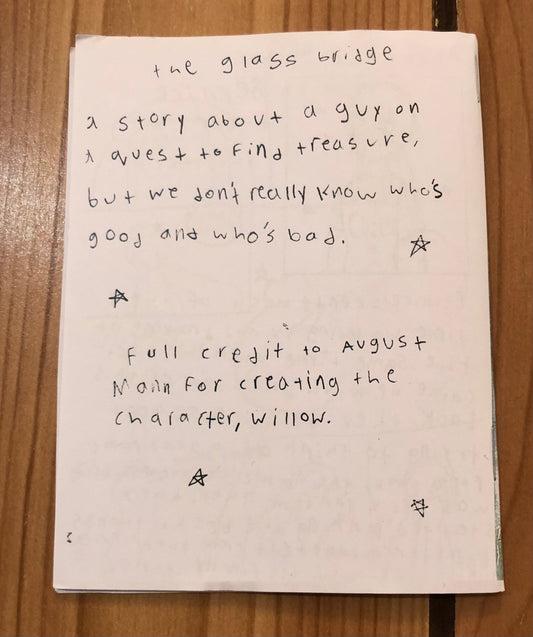 the glass bridge
A story about a guy on
A quest to find treasure,
but we don't really know who's
good and who's bad.
Full credit to August
Mann for creating the
character, willow.